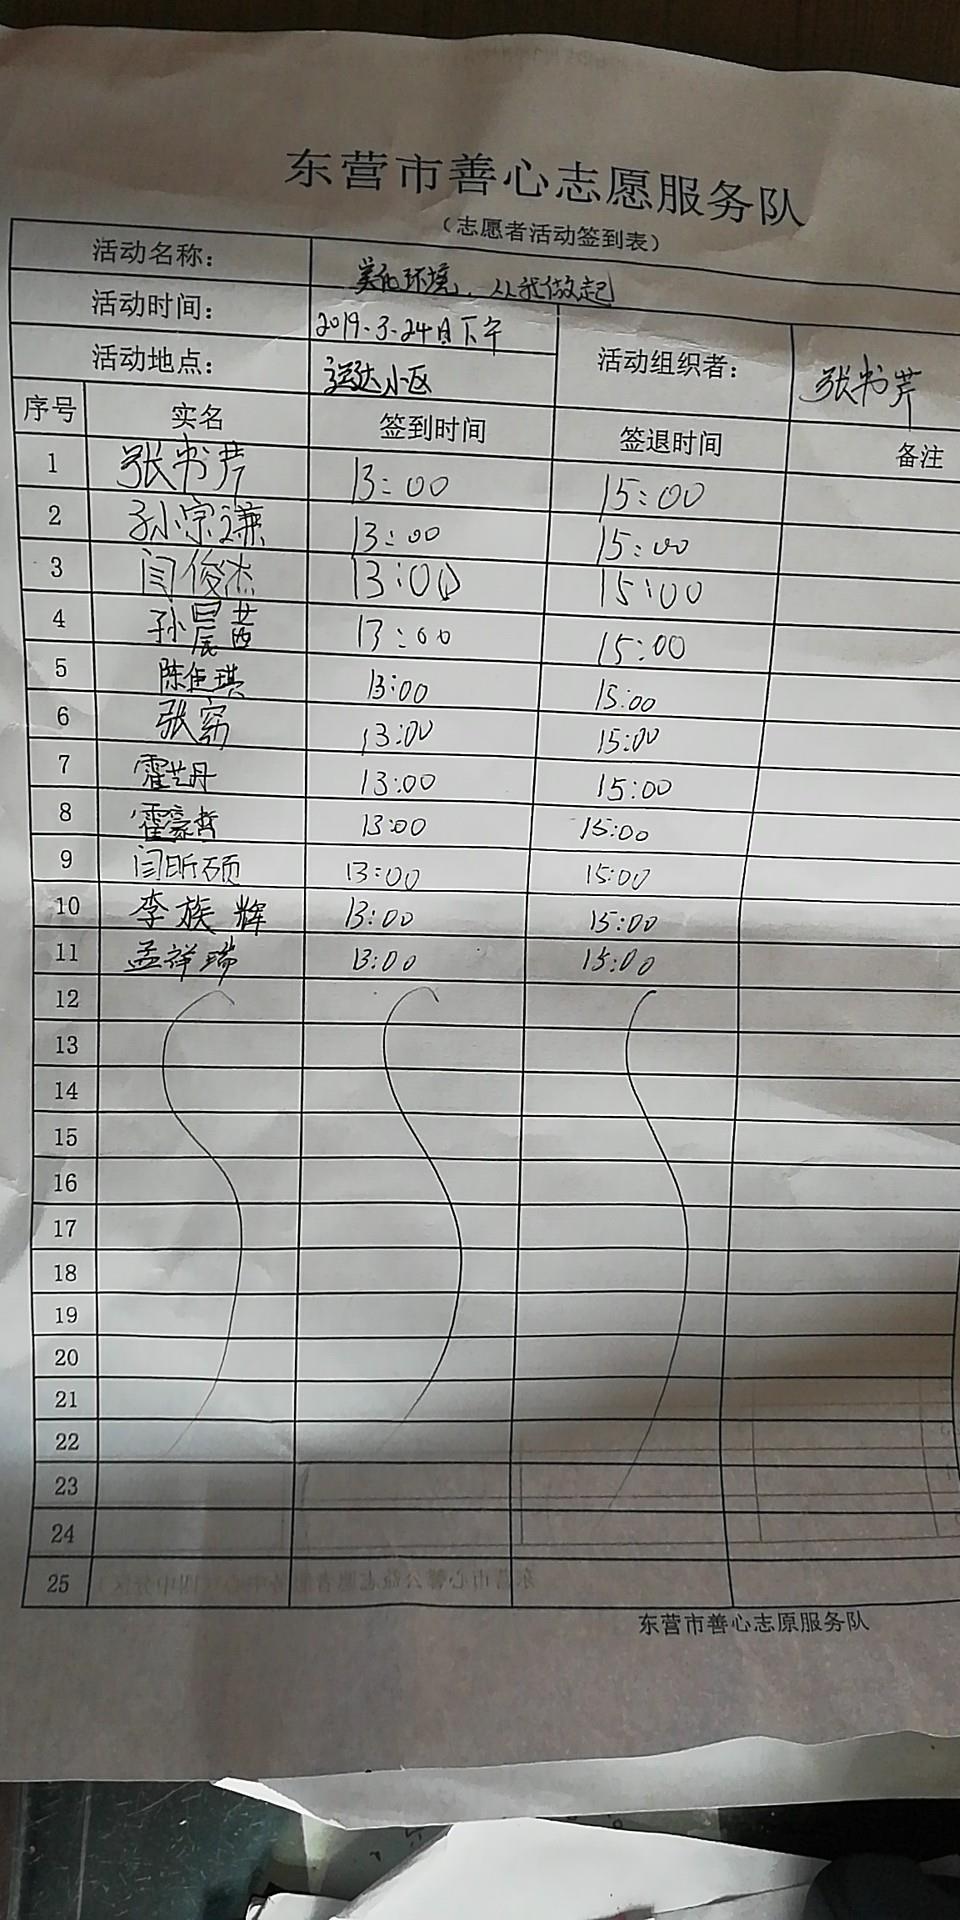 东营市善心志愿服务队
（志愿者活动签到表）
活动名称： 美化环境，从我做起
活动时间： 2019.3.24日下午 活动组织者： 张书芹
活动地点： 运达小区
序号 实名 签到时间 签退时间 备注
1 张书芹 13:00 15:00
2 孙宗谦 13:00 15:00
3 闫俊杰 13:00 15:00
4 孙晨茜 13:00 15:00
5 陈佳琪 13:00 15:00
6 张窈 13:00 15:00
7 霍艺丹 13:00 15:00
8 霍豪哲 13:00 15:00
9 闫昕硕 13:00 15:00
10 李族辉 13:00 15:00
11 孟祥瑞 13:00 15:00
12
13
14
15
16
17
18
19
20
21
22
23
24
25
东营市善心志原服务队